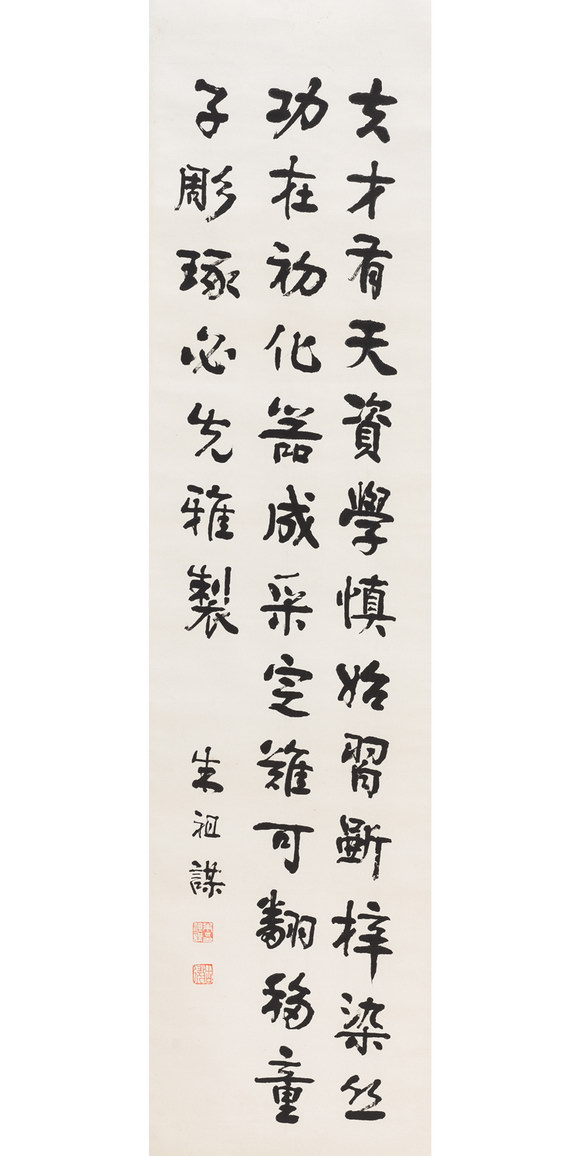 夫才有天資學慎始習斲梓染丝
功在初化器成采定難可翻移童
子彫琢必先雅製
朱祖謀